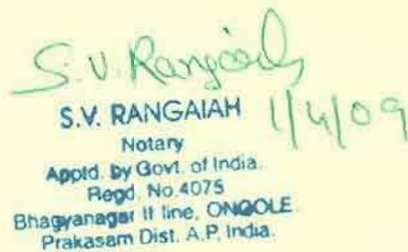 S.V. Rangaiah
S.V. RANGAIAH 1/4/09
Notary
Apptd. by Govt. of India.
Regd. No.4075
Bhagyanagar II line, ONGOLE.
Prakasam Dist. A.P. India.